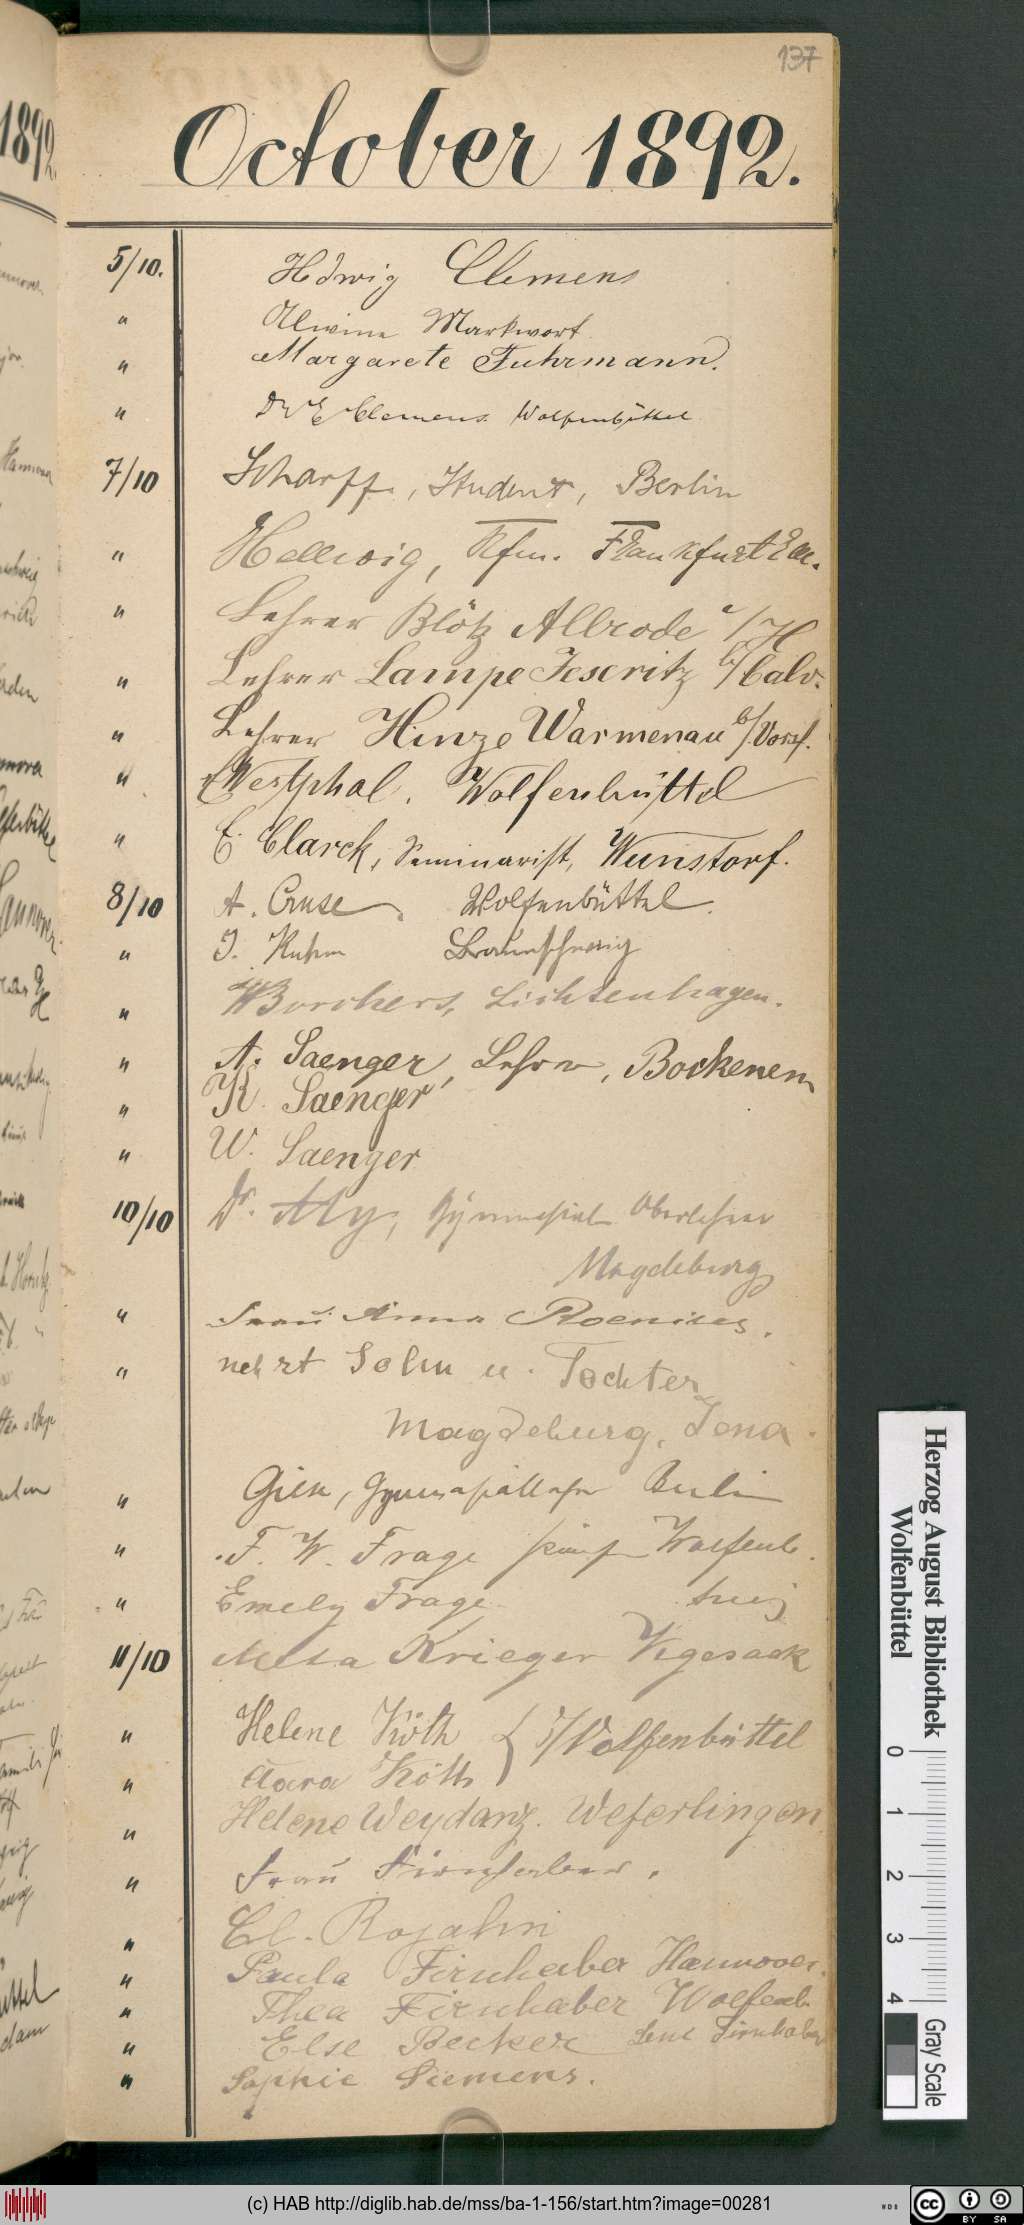 137
October 1892.
5/10. Hedwig Clemens
" Alwine Markwort
" Margarete Fuhrmann.
" Dr E Clemens. Wolfenbüttel
7/10 Scharff, Student, Berlin
" Hellwig, Kfm. Frankfurt
" Lehrer Blötz Allrode a/H
" Lehrer Lampe Jeseritz b/Calv.
" Lehrer Hinze Warmenau b/Vorsf.
" Westphal. Wolfenbüttel
" E. Clarck, Seminarist, Wunstorf.
8/10 A. Cruse. Wolfenbüttel.
" J. Kuhm Braunschweig
" Borchers, Lichtenhagen.
" A. Saenger, Lehrer, Bockenem
" K. Saenger
" W. Saenger
10/10 Dr. Aly, Gymnasial Oberlehrer
Magdeburg
" Frau Anna
" nebst Sohn u. Tochter
Magdeburg, Jena.
" Gymnasiallehrer Berlin
" F. W. Frage Wolfenb.
" Emely Frage
11/10 Meta Krieger Vegesack
" Helene Köth } z/Wolfenbüttel
" Clara Köth
" Helene Weydanz. Weferlingen
" Frau Firnhaber.
" Cl. Rojahn
" Paula Firnhaber Hannover.
" Thea Firnhaber Wolfenb.
" Else Becker Lene Firnhaber
" Sophie Siemens.
Herzog August Bibliothek
Wolfenbüttel
0 1 2 3 4
Gray Scale
(c) HAB http://diglib.hab.de/mss/ba-1-156/start.htm?image=00281
WDB
cc BY SA